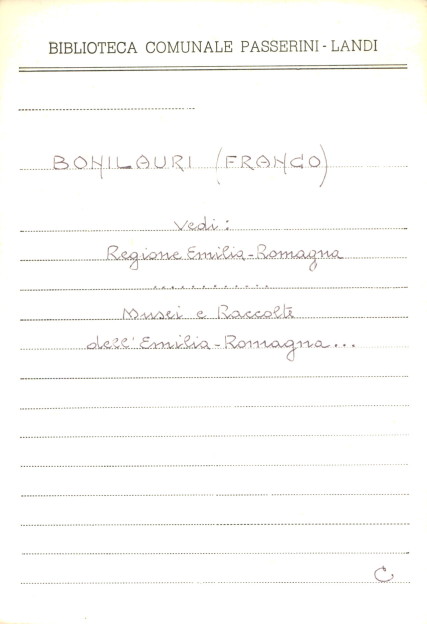 BIBLIOTECA COMUNALE PASSERINI-LANDI
BONILAURI (FRANCO)
Vedi:
Regione Emilia-Romagna
............
Musei e Raccolte
dell'Emilia-Romagna...
C